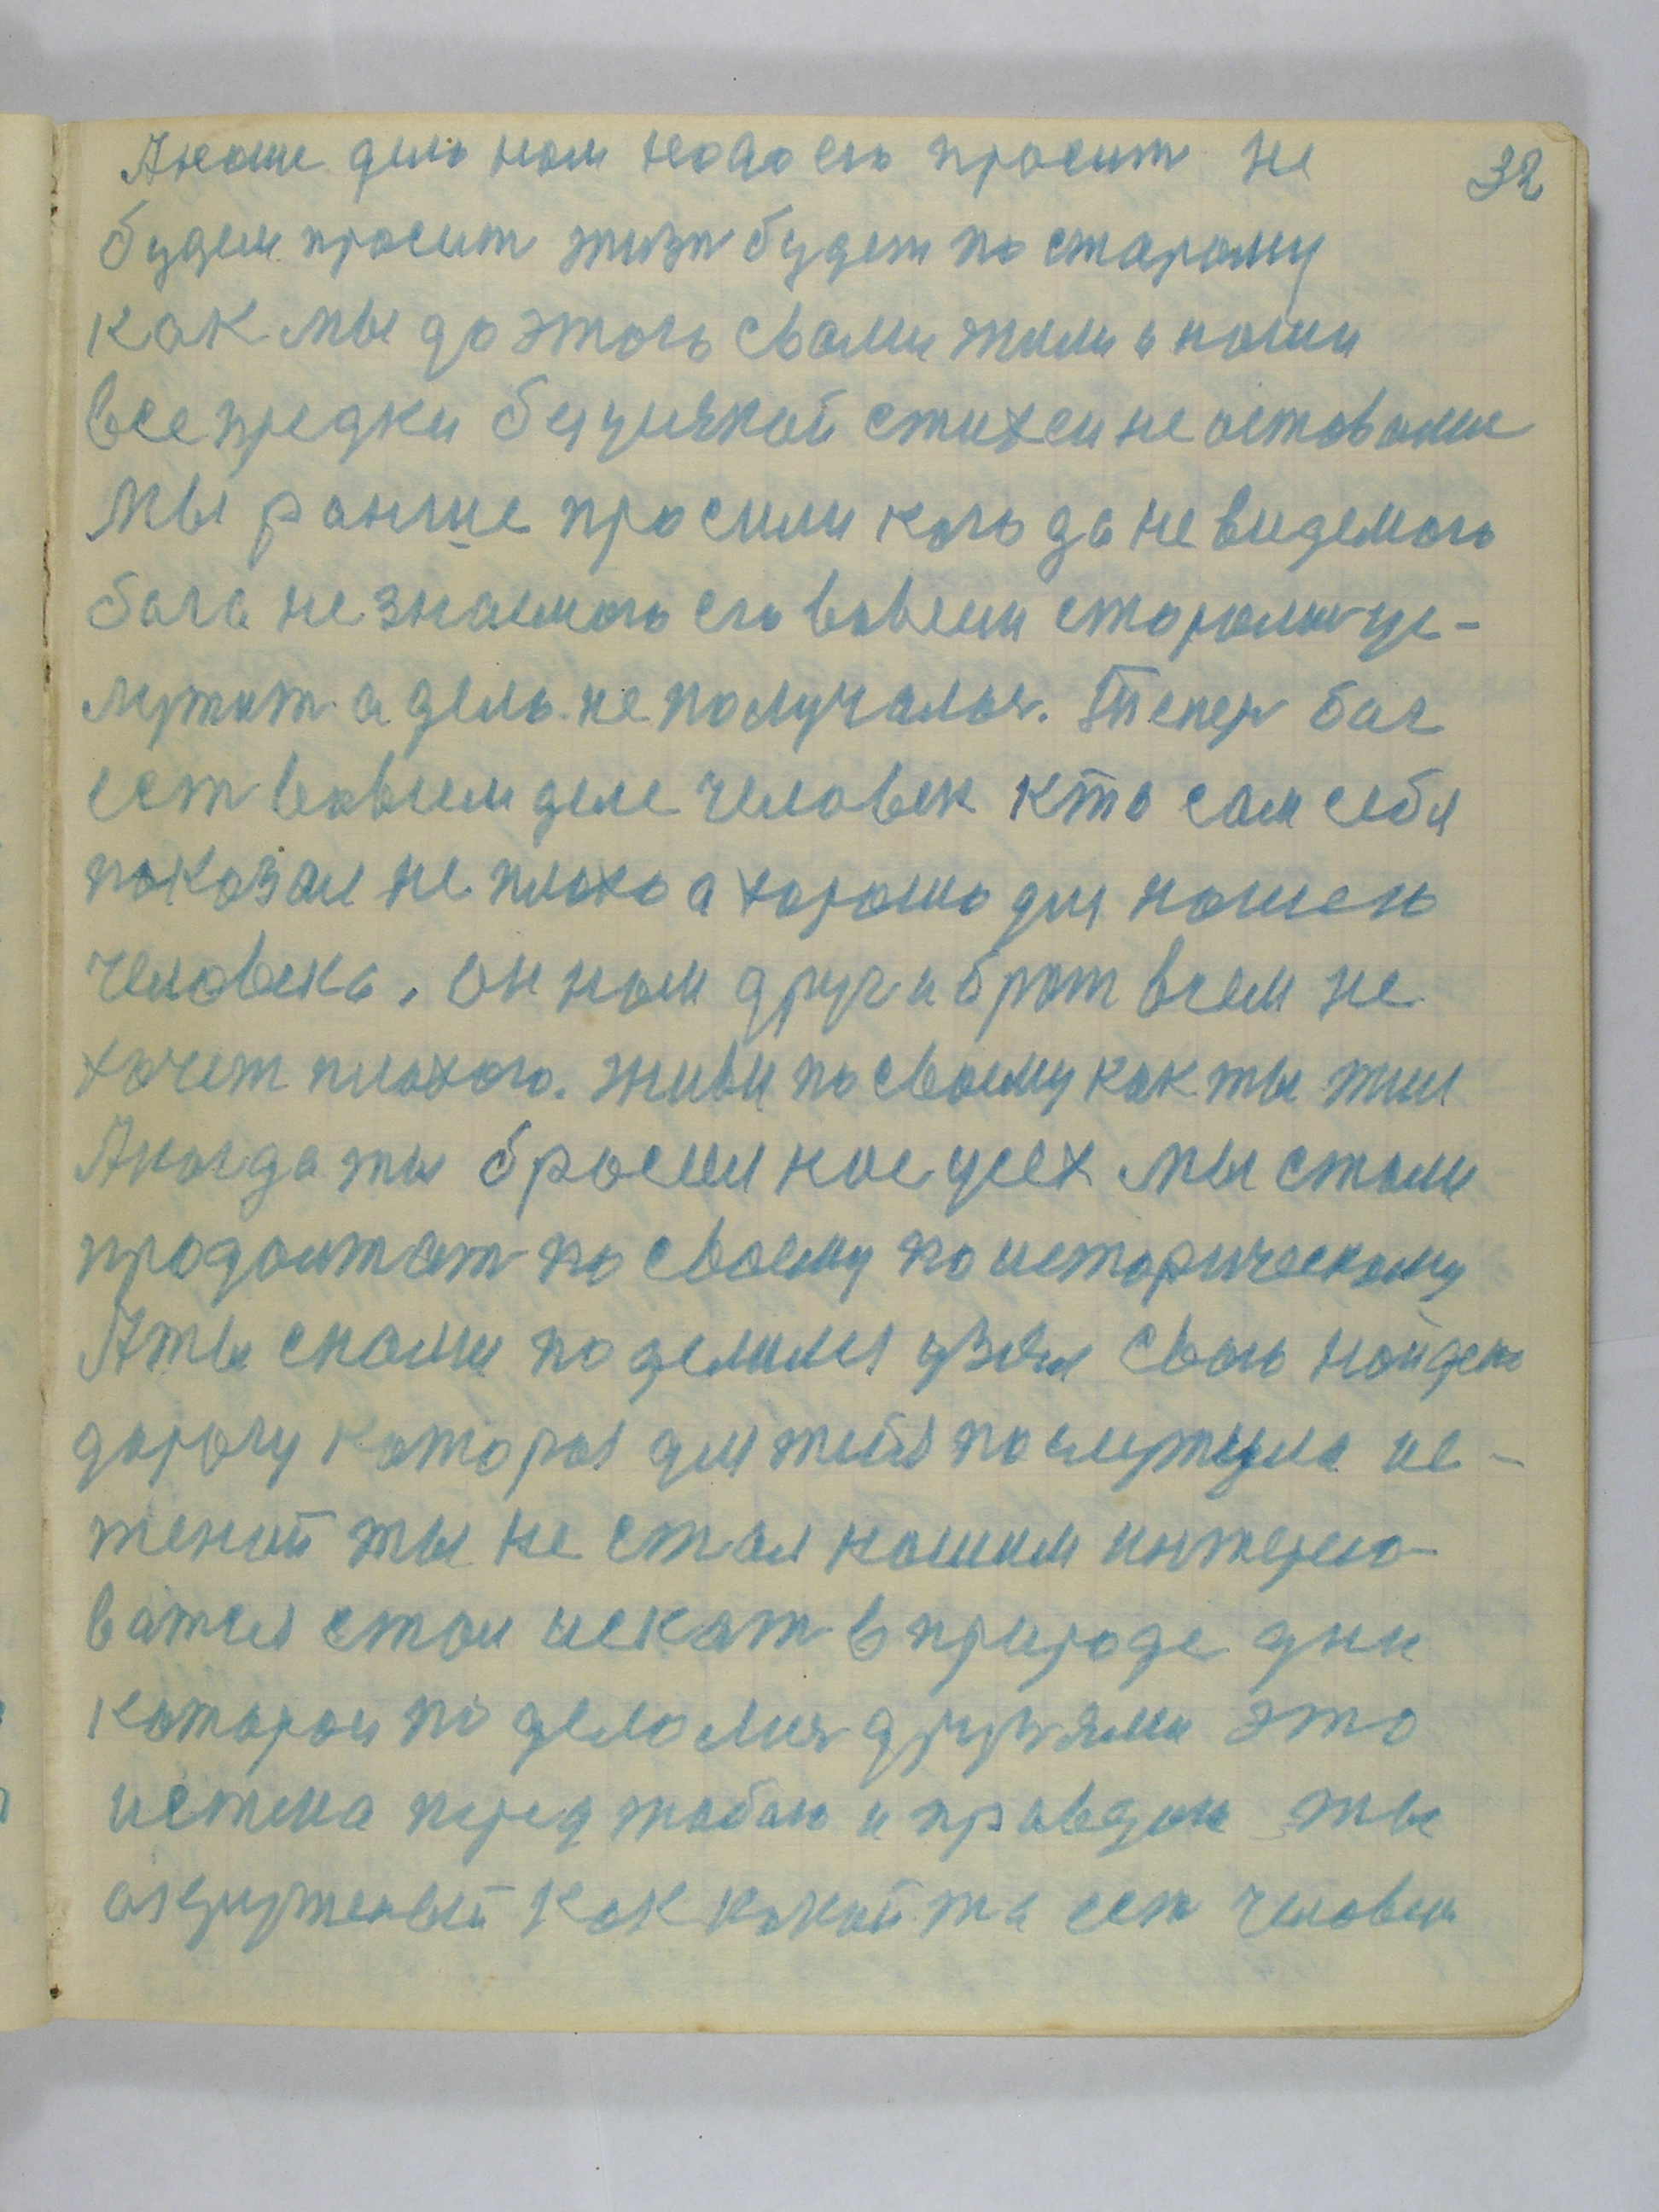 Анаше дело нам надо его просит не 32
будем просит жизн будет по старому
как мы до этого свами жили и наши
все предки без усякой стихеи не оставалис
Мы раньше просили кого да не видемого
бога не знаемого его вовсем старалис ус-
лужит а дело не получалься. Тепер бог
ест вовсем деле человек кто сам себя
показал не плохо а хорошо для нашего
человека. Он нам друг и брат всем не
хочет плохого. живи по своему как ты жил
Акогда ты бросил нас усех мы стали
продолжат по своему по историческому
Аты снами поделился узял свою найдену
дорогу которая для тебя послужила ис-
теной ты не стал нашим интересо-
ватся стал искат в природе дни
которои по делалис друзями это
истена перед тобою и правдою ты
окружоный как какой та ест человек